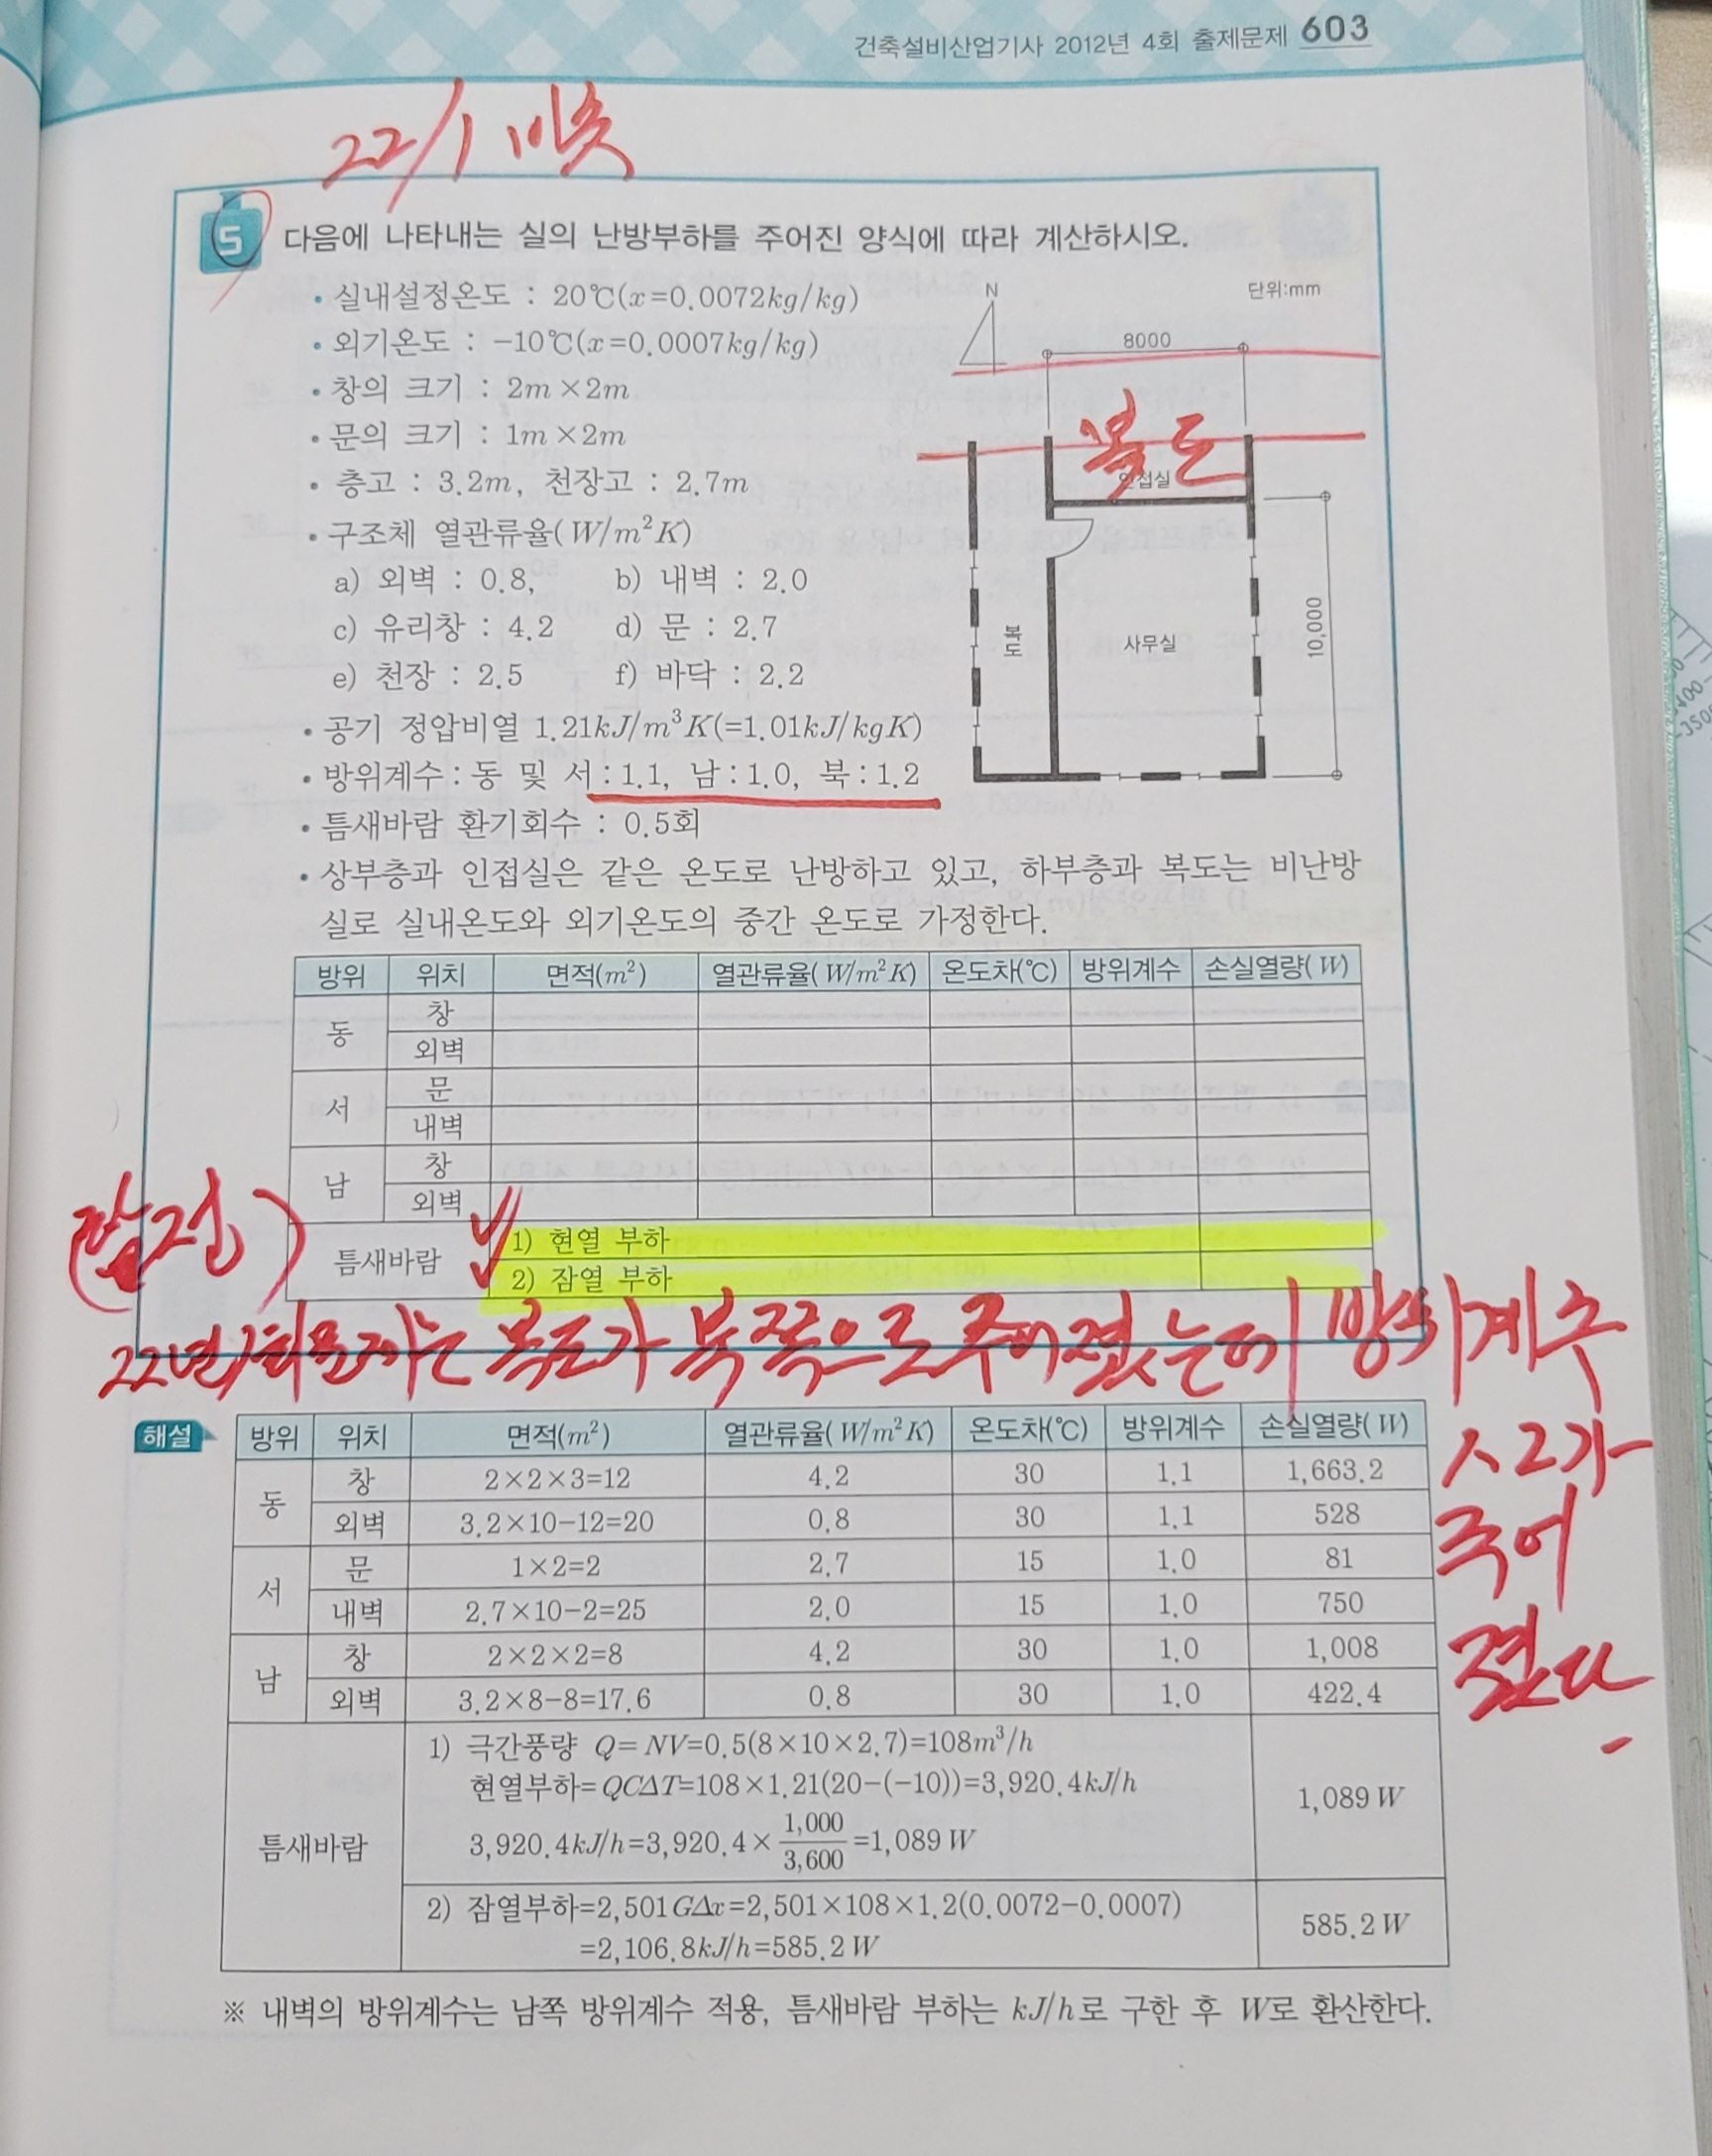 건축설비산업기사 2012년 4회 출제문제 603
22/1 비슷
5 다음에 나타내는 실의 난방부하를 주어진 양식에 따라 계산하시오.
• 실내설정온도 : 20℃(x=0.0072kg/kg)
• 외기온도 : -10℃(x=0.0007kg/kg)
• 창의 크기 : 2m×2m
• 문의 크기 : 1m×2m
• 층고 : 3.2m, 천장고 : 2.7m
• 구조체 열관류율(W/m²K)
a) 외벽 : 0.8, b) 내벽 : 2.0
c) 유리창 : 4.2 d) 문 : 2.7
e) 천장 : 2.5 f) 바닥 : 2.2
• 공기 정압비열 1.21kJ/m³K(=1.01kJ/kgK)
• 방위계수 : 동 및 서 : 1.1, 남 : 1.0, 북 : 1.2
• 틈새바람 환기회수 : 0.5회
• 상부층과 인접실은 같은 온도로 난방하고 있고, 하부층과 복도는 비난방
실로 실내온도와 외기온도의 중간 온도로 가정한다.
N
단위:mm
8000
복도
인접실
10,000
복도
사무실
방위 위치 면적(m²) 열관류율(W/m²K) 온도차(℃) 방위계수 손실열량(W)
동 창
외벽
서 문
내벽
남 창
외벽
틈새바람 1) 현열 부하
2) 잠열 부하
22년1회문제는 복도가 북쪽으로 주어졌는데 방위계수
1.2가
주어
졌다.
해설
방위 위치 면적(m²) 열관류율(W/m²K) 온도차(℃) 방위계수 손실열량(W)
동 창 2×2×3=12 4.2 30 1.1 1,663.2
외벽 3.2×10-12=20 0.8 30 1.1 528
서 문 1×2=2 2.7 15 1.0 81
내벽 2.7×10-2=25 2.0 15 1.0 750
남 창 2×2×2=8 4.2 30 1.0 1,008
외벽 3.2×8-8=17.6 0.8 30 1.0 422.4
틈새바람
1) 극간풍량 Q=NV=0.5(8×10×2.7)=108m³/h
현열부하=QCΔT=108×1.21(20-(-10))=3,920.4kJ/h
3,920.4kJ/h=3,920.4×1,000/3,600=1,089W
1,089W
2) 잠열부하=2,501GΔx=2,501×108×1.2(0.0072-0.0007)
=2,106.8kJ/h=585.2W
585.2W
※ 내벽의 방위계수는 남쪽 방위계수 적용, 틈새바람 부하는 kJ/h로 구한 후 W로 환산한다.